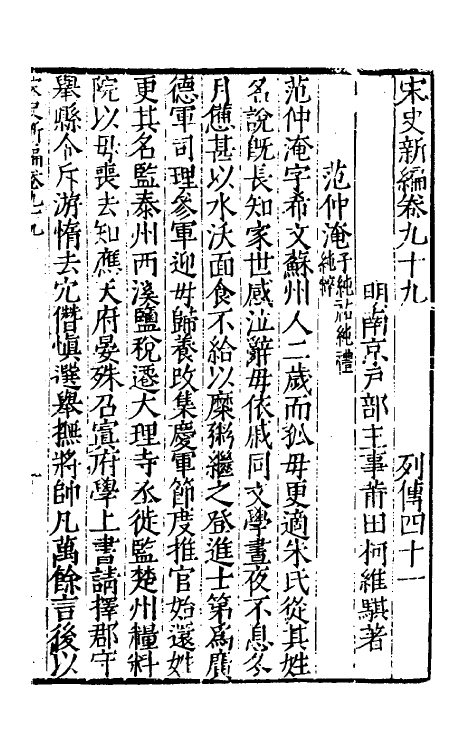 宋史新編卷九十九　列傳四十一
明南京戶部主事莆田柯維騏著
范仲淹子純祐純禮純粹
范仲淹字希文蘇州人二歲而孤毋更適朱氏從其姓
名說旣長知家世感泣辭毋依戚同文學晝夜不息冬
月憊甚以水沃面食不給以糜粥繼之登進士第爲廣
德軍司理參軍迎毋歸養改集慶軍節度推官始還姓
更其名監泰州西溪鹽稅遷大理寺丞徙監楚州糧料
院以毋喪去知應天府晏殊召寘府學上書請擇郡守
舉縣令斥游惰去宂僭愼選舉撫將帥凡萬餘言後以
宋史新編卷九十九
一